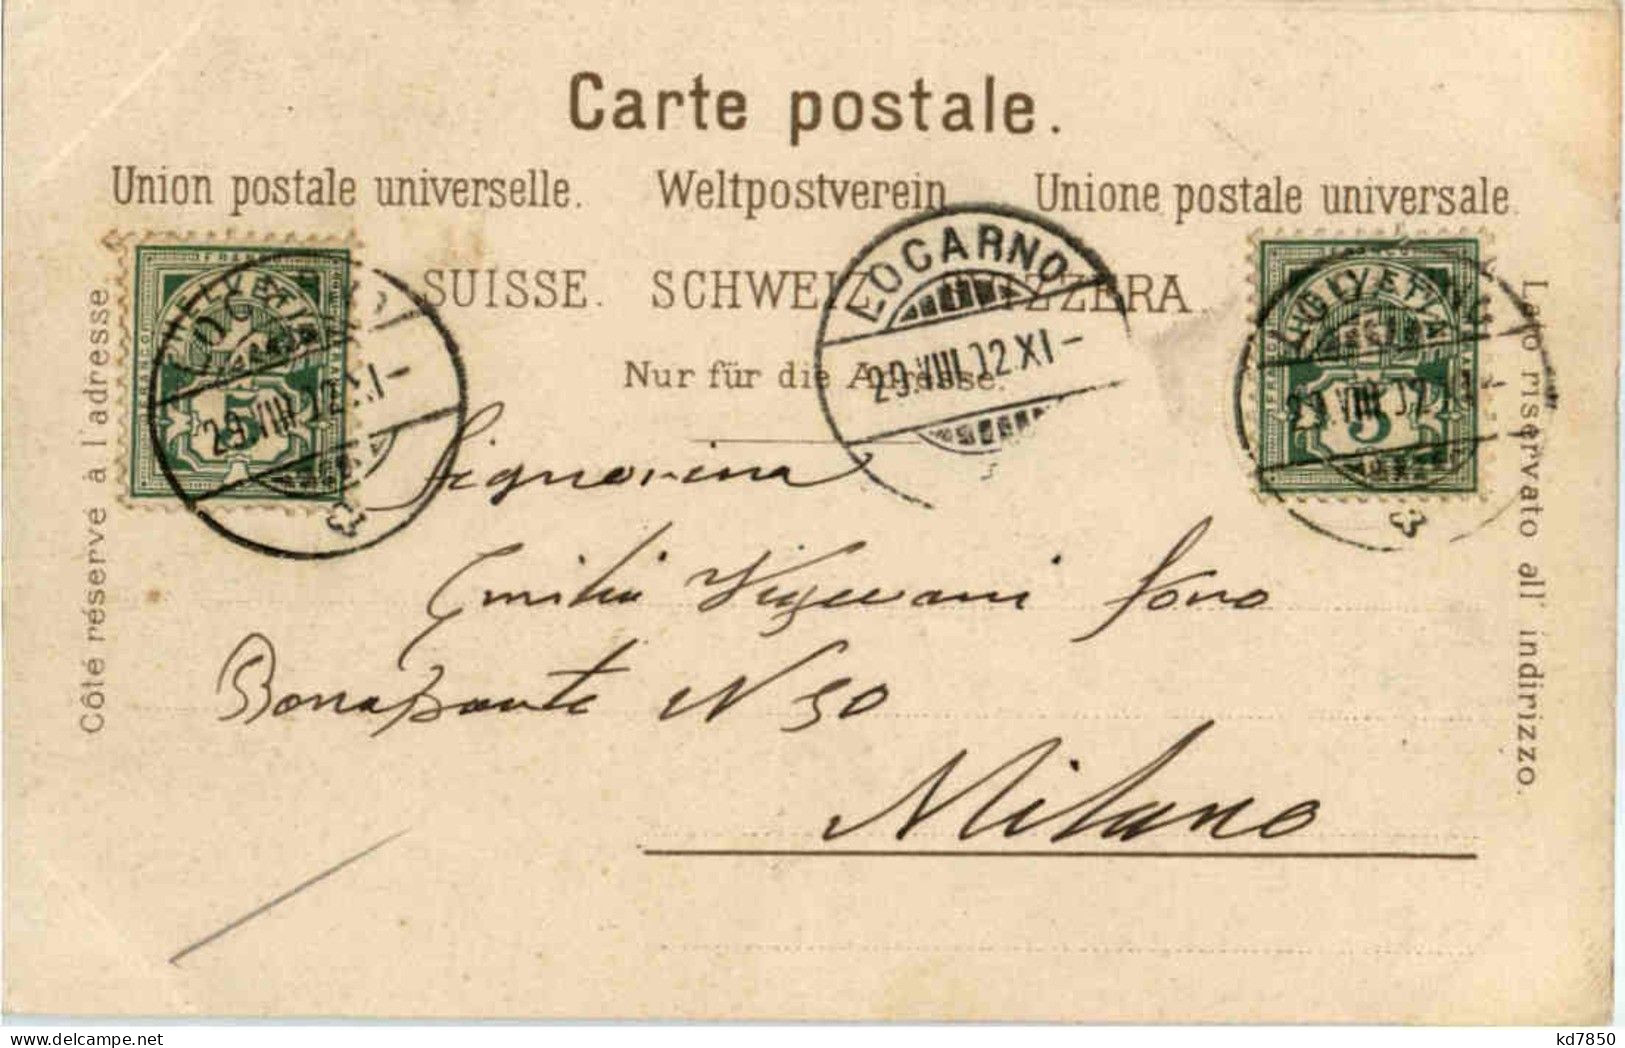 Carte postale.
Union postale universelle. Weltpostverein Unione postale universale.
SUISSE. SCHWEIZ ZZERA.
Nur für die Adresse.
Côté réservé à l'adresse.
Lato riservato all' indirizzo.
HELVETIA
5
HELVETIA
5
LOCARNO
29.VIII.02.XI-
LOCARNO
29.VIII.02.XI-
Signorina
Emilia Vigevani Foro
Bonaparte N 50
Milano
www.delcampe.net
kd7850